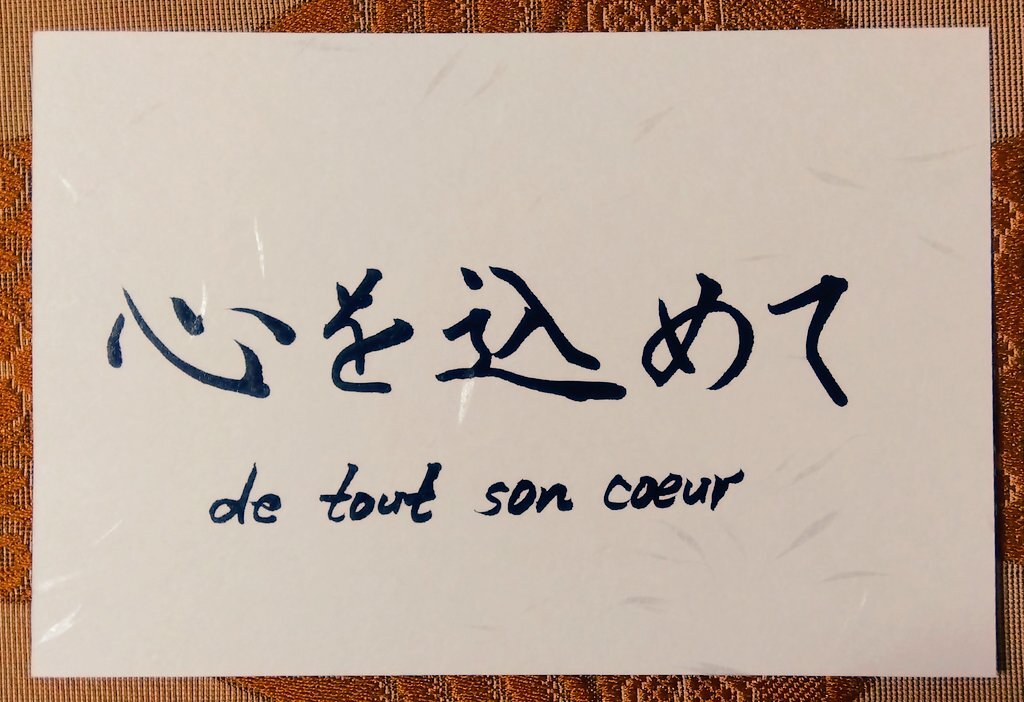 心を込めて
de tout son coeur